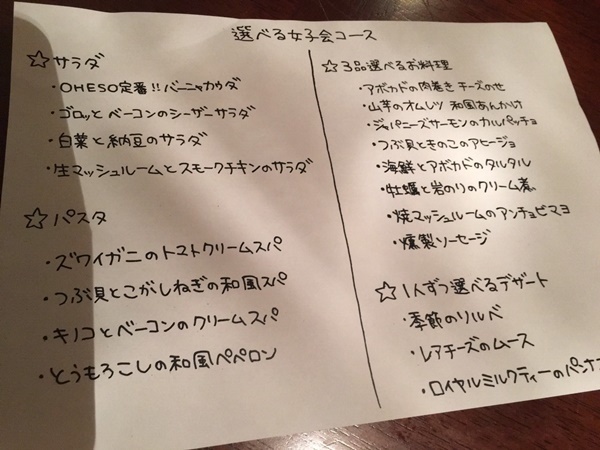 選べる女子会コース
☆サラダ
・OHESO定番!!バーニャカウダ
・ゴロッとベーコンのシーザーサラダ
・白菜と納豆のサラダ
・生マッシュルームとスモークチキンのサラダ
☆パスタ
・ズワイガニのトマトクリームスパ
・つぶ貝とこがしねぎの和風スパ
・キノコとベーコンのクリームスパ
・とうもろこしの和風ペペロン
☆3品選べるお料理
・アボカドの肉巻き チーズのせ
・山芋のオムレツ 和風あんかけ
・ジャパニーズサーモンのカルパッチョ
・つぶ貝ときのこのアヒージョ
・海鮮とアボカドのタルタル
・牡蠣と岩のりのクリーム煮
・焼マッシュルームのアンチョビマヨ
・燻製ソーセージ
☆1人ずつ選べるデザート
・季節のソルベ
・レアチーズのムース
・ロイヤルミルクティーのパンナ